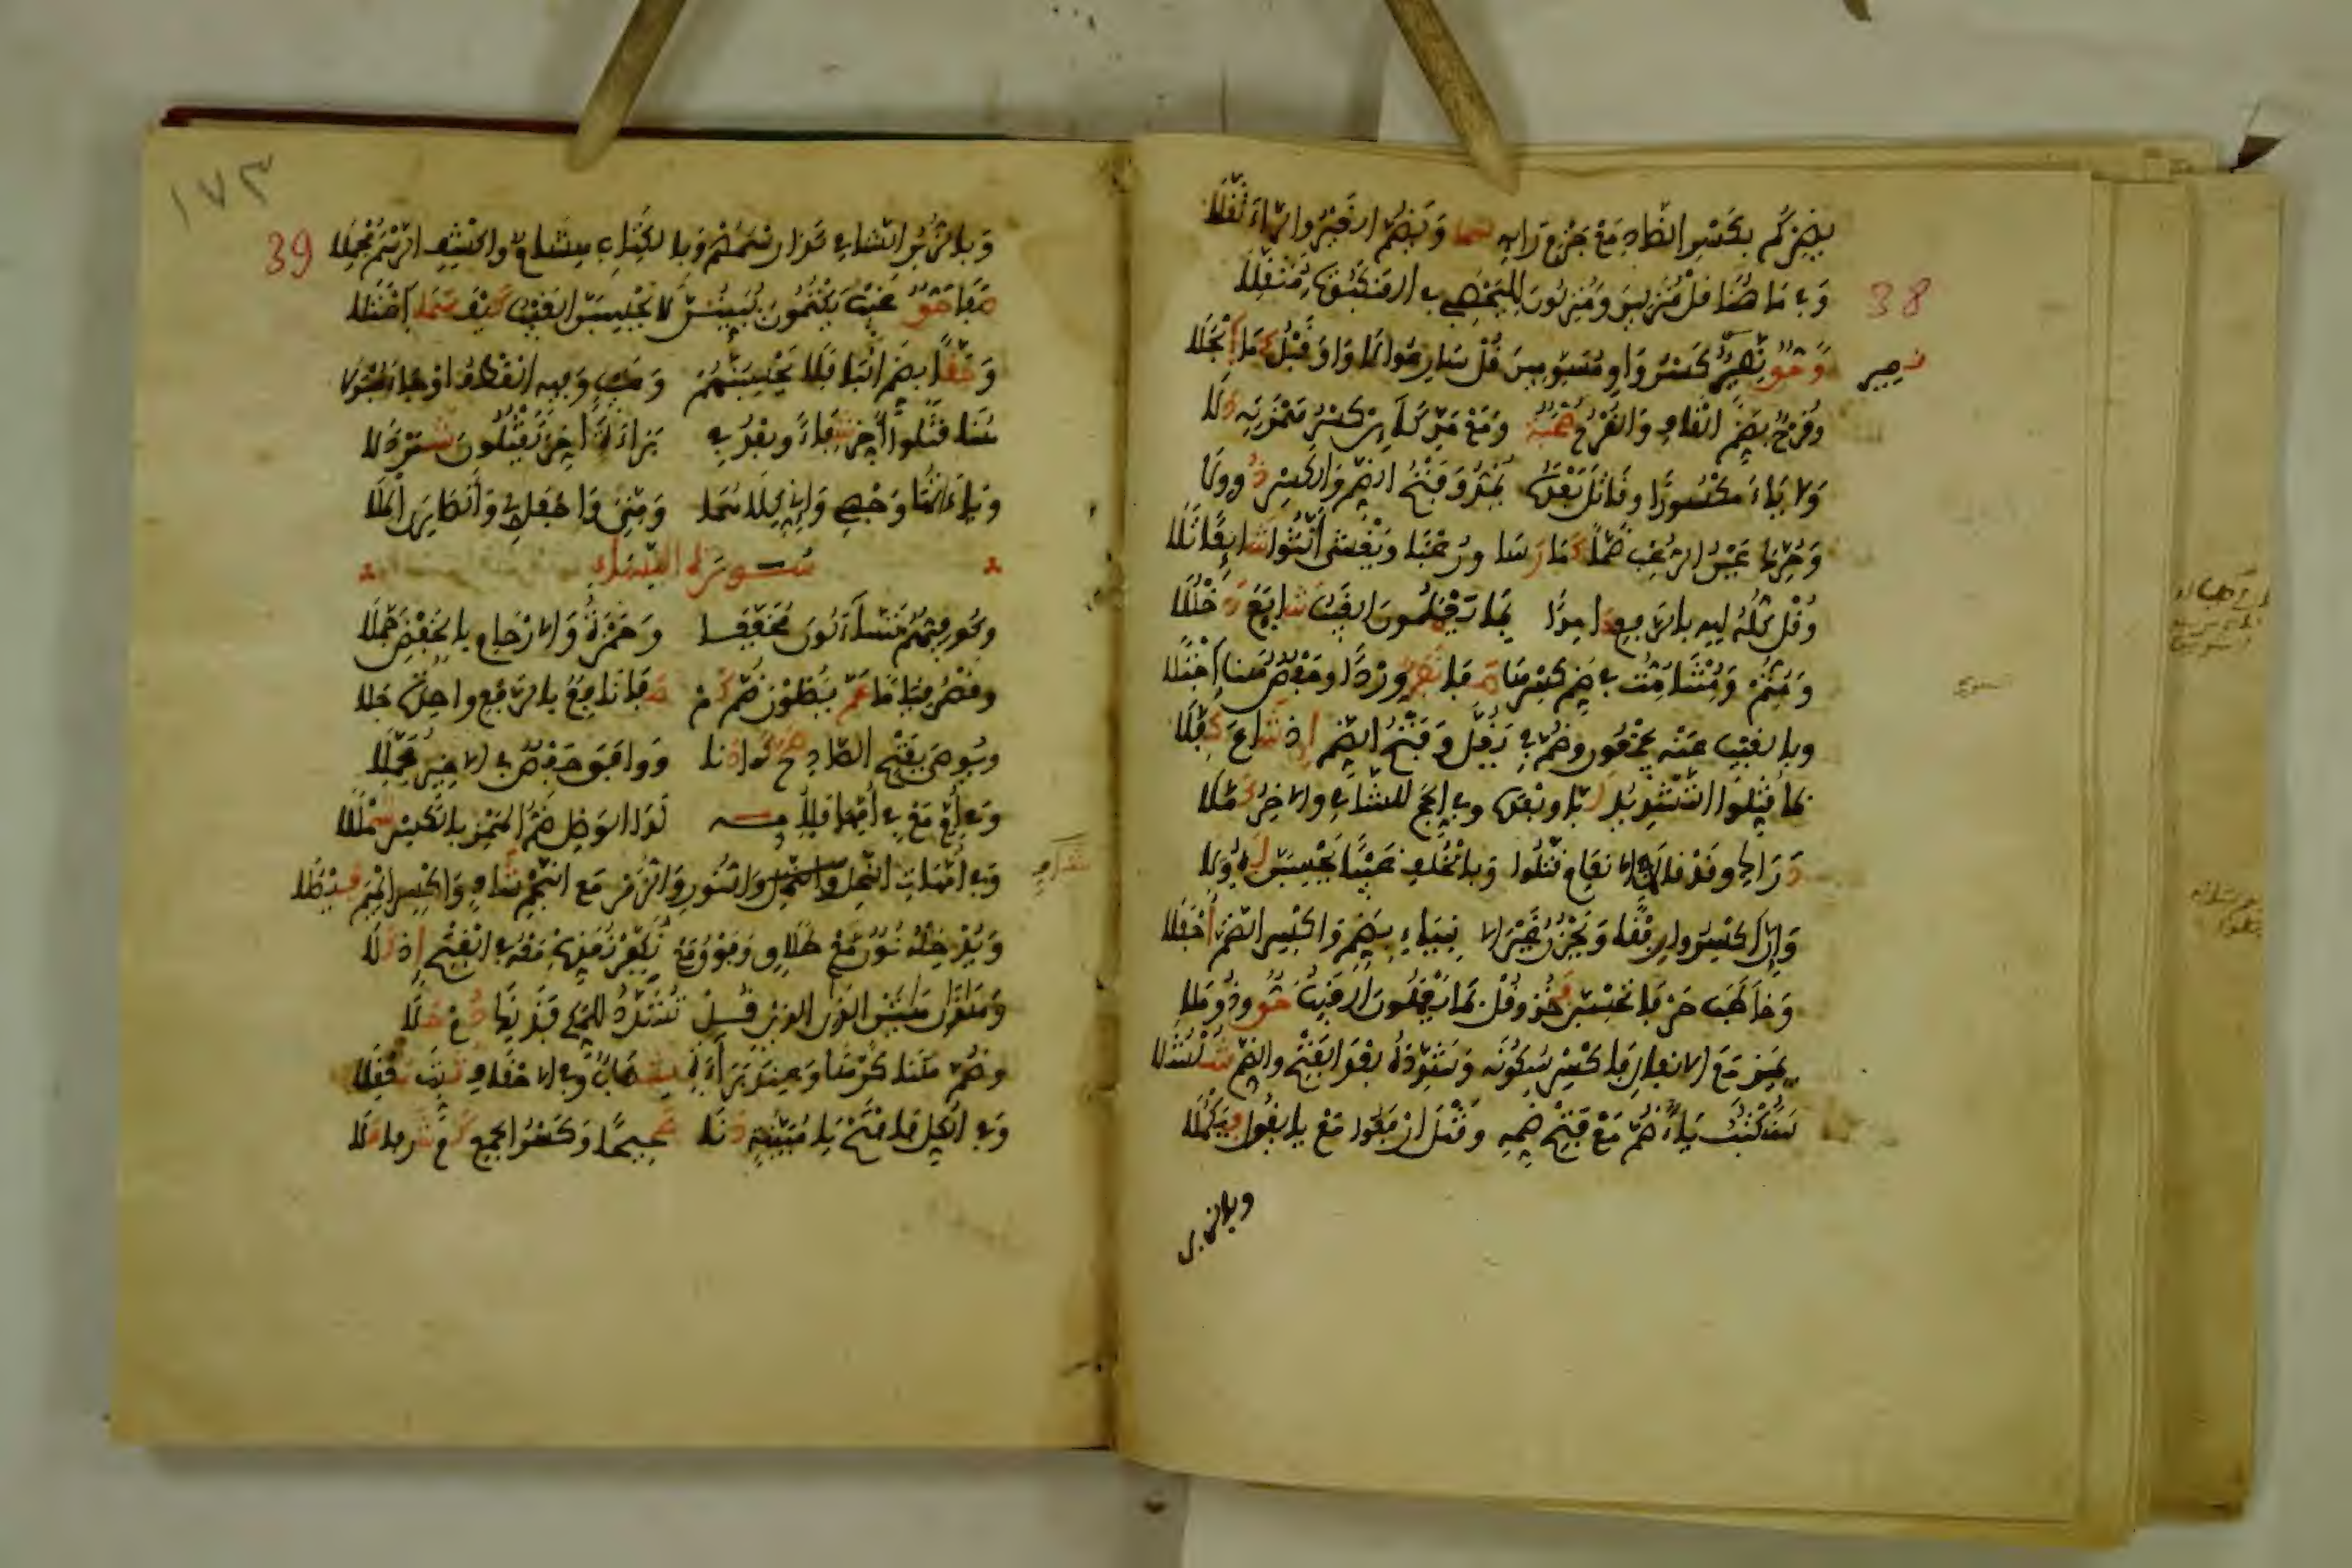 يضركم بكسر الضاد مع جزم رائه سما ويضم الغير والراء ثقلا
38
وفي ما هنا قل منزلين ومنزلون لليحصبي في العنكبوت مثقلا
وحق نصير كسر واو مسومين قل سارعوا لا واو قبل كما انجلا
نصير
وقرح بضم القاف والقرح صحبة ومع مد كائن كسر همزته دلا
ولا ياء مكسورا وقاتل بعده يمد وفتح الضم والكسر ذو ولا
وحرك عين الرعب ضما كما رسا ورعبا ويغشى أنثوا شائعا تلا
وقل كله لله بالرفع حامدا بما يعملون الغيب شايع دخللا
ومتم ومتنا مت في ضم كسرها صفا نفر وردا وحفص هنا اجتلا
وبالغيب عنه يجمعون وضم في يغل وفتح الضم إذ شاع كفلا
بما قتلوا التشديد لبى وبعده وفي الحج للشامي والآخر كملا
دراك وقد قالا في الأنعام قتلوا وبالخلف غيبا يحسبن له ولا
وإن اكسروا رفقا ويحزن غير الأنبياء بضم واكسر الضم أحفلا
وخاطب حرفا يحسبن فخذ وقل بما يعملون الغيب حق وذو ملا
يميز مع الأنفال فاكسر سكونه وشدده بعد الفتح والضم شلشلا
سنكتب ياء ضم مع فتح ضمه وقتل ارفعوا مع يا نقول فيكملا
وبالزبر
١٧٣
39
وبالزبر الشامي كذا رسمهم وبالكتاب هشام واكشف الرسم مجملا
صفا حق غيب يكتمون يبينن لا يحسبن الغيب كيف سما اعتلا
وحقا بضم البا فلا يحسبنهم وغيب وفيه العطف أو جاء مبدلا
هنا قتلوا أخر شفاء وبعد في براءة أخر يقتلون شمردلا
وياءاتها وجهي وإني كلاهما ومني واجعل لي وأنصاري الملا
سورة النساء
وكوفيهم تساءلون مخففا وحمزة والأرحام بالخفض جملا
وقصر قياما عم يصلون ضم كم صفا نافع بالرفع واحدة جلا
ويوصى بفتح الصاد صح كما دنا ووافق حفص في الأخير مجملا
وفي أم مع في أمها فلأمه لدى الوصل ضم الهمز بالكسر شمللا
وفي أمهات النحل والنور والزمر مع النجم شاف واكسر الميم فيصلا
وندخله نون مع طلاق وفوق مع نكفر نعذب معه في الفتح إذ كلا
وهذان هاتين اللذان اللذين قل تشدد للمكي فذانك دم حلا
وضم هنا كرها وعند براءة شهاب وفي الأحقاف ثبت معقلا
وفي الكل فافتح يا مبينة دنا صحيحا وكسر الجمع كم شرفا علا